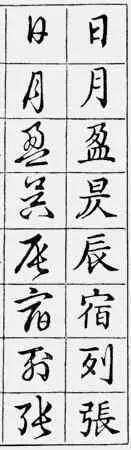 日月盈昃辰宿列張
日月盈昃辰宿列張